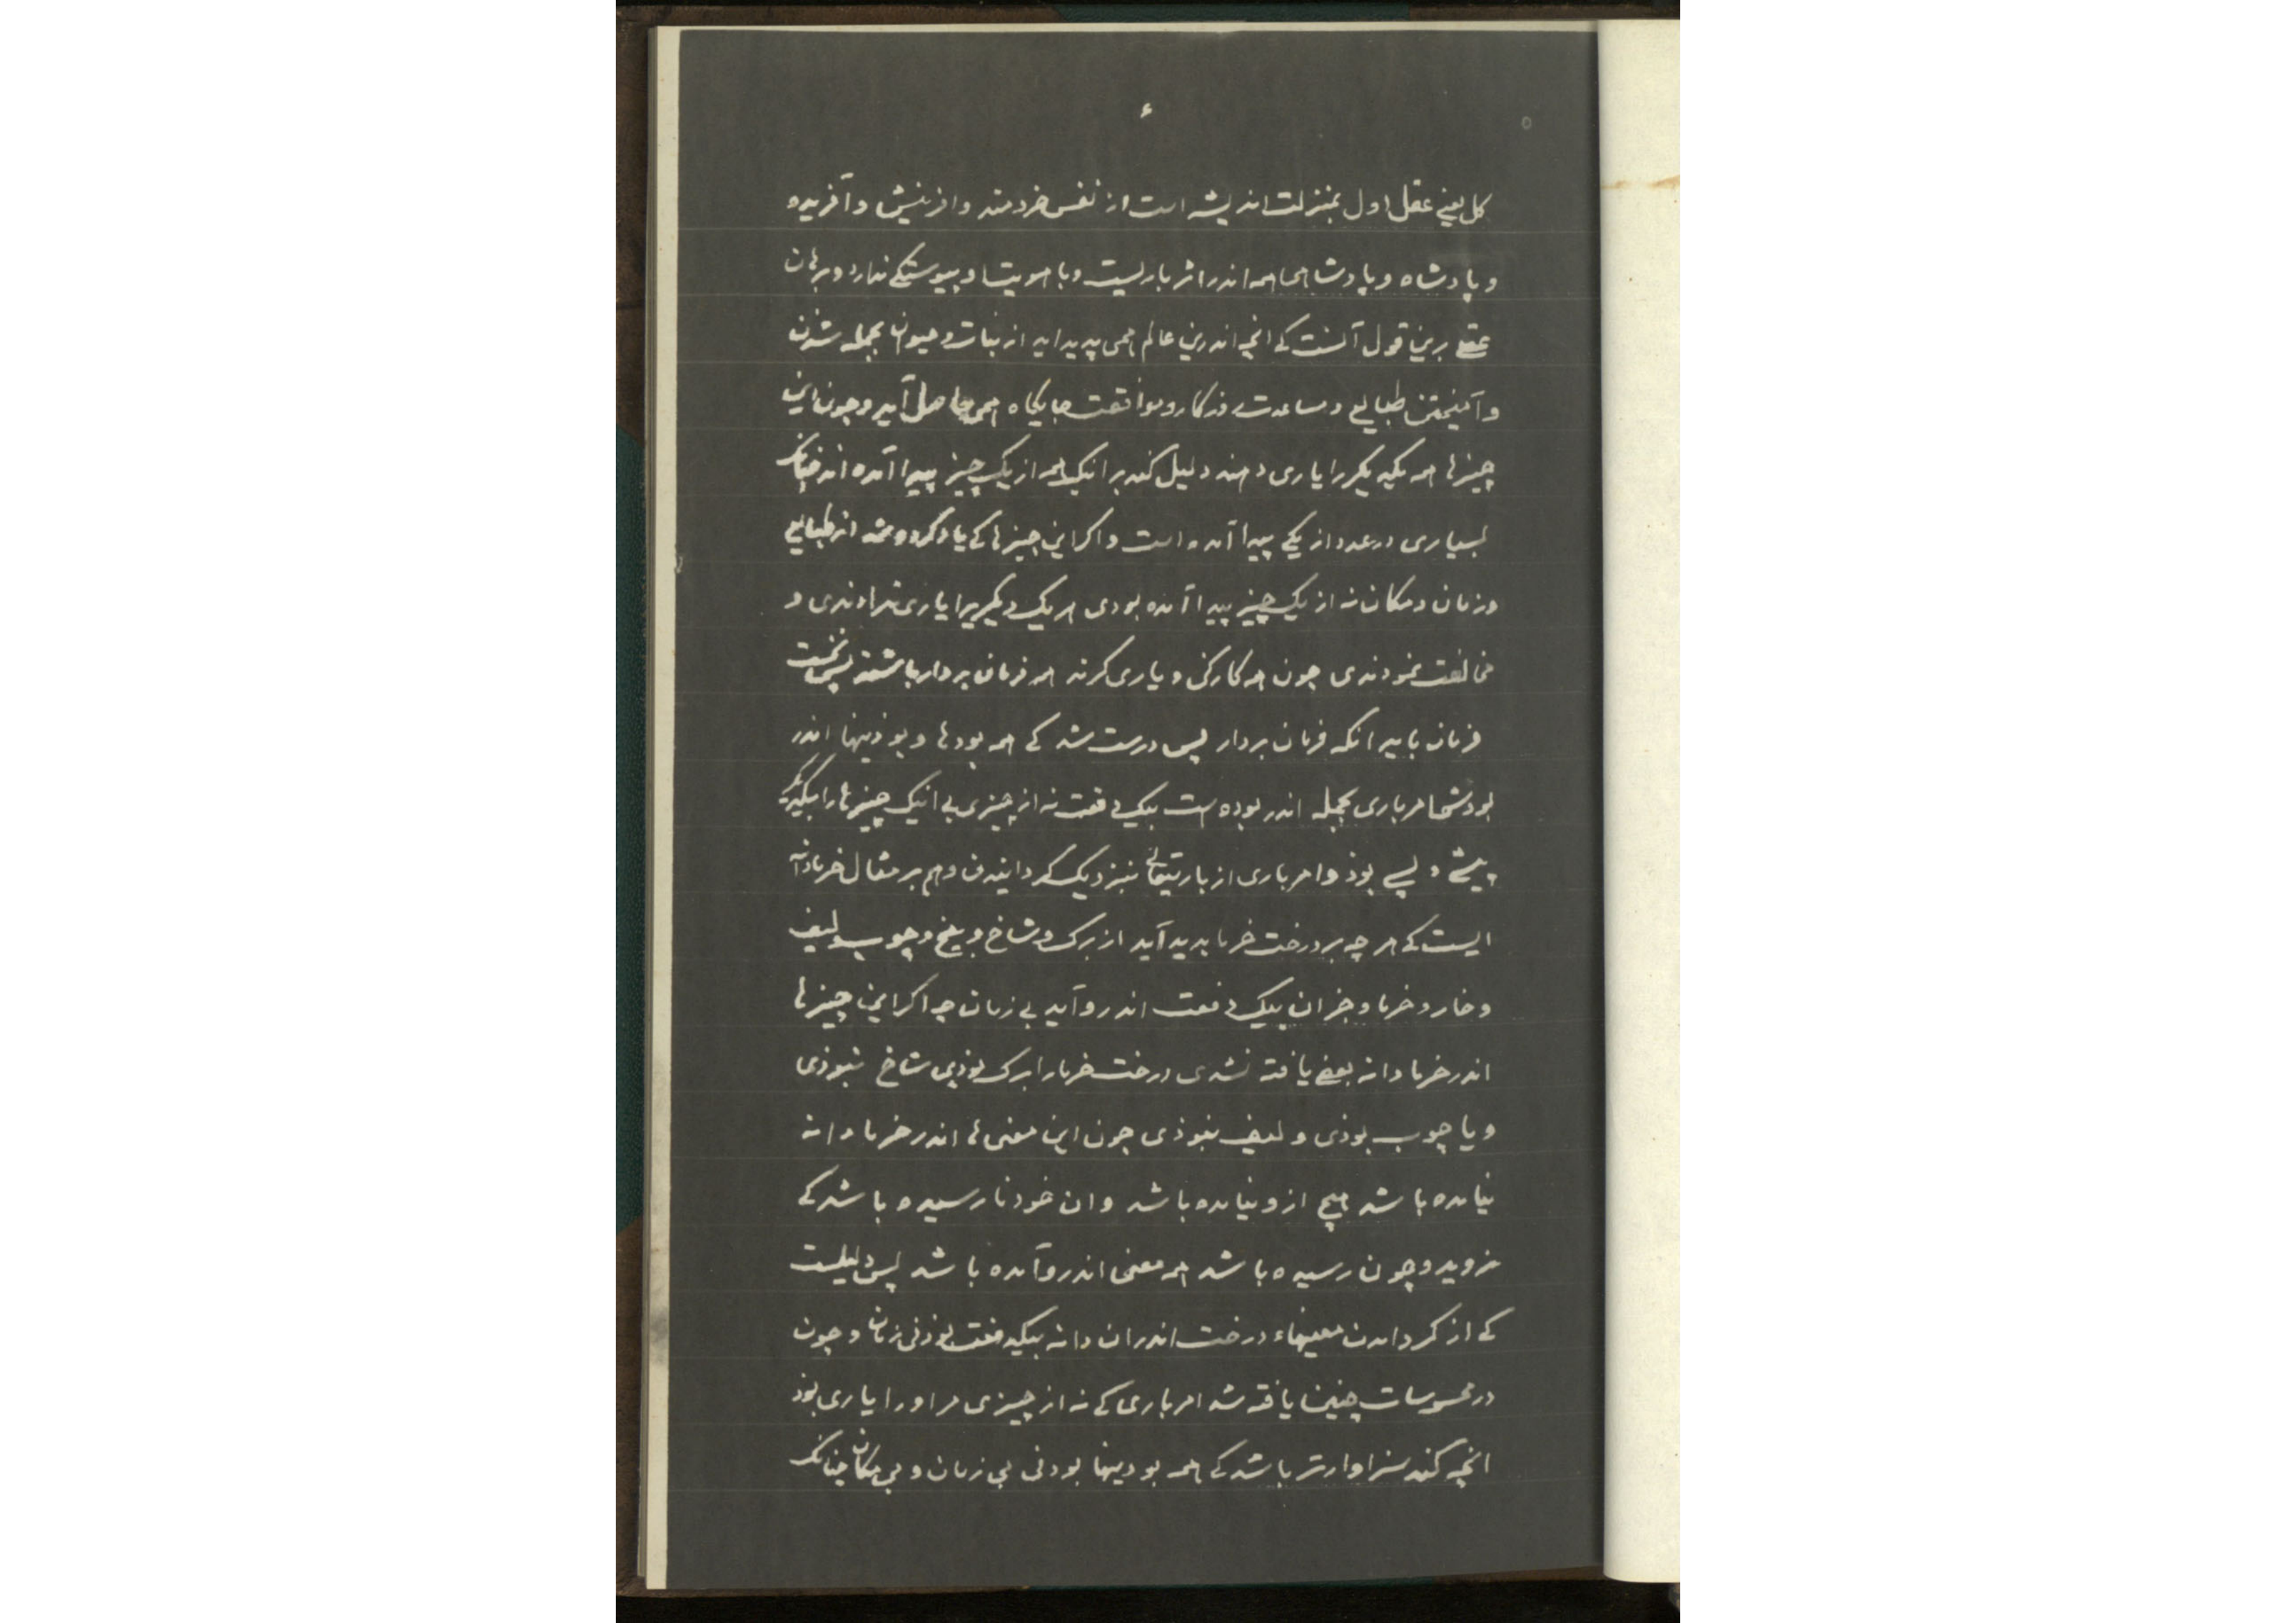 ۶
کل یعنی عقل اول بمنزلت اندیشه است از نفس خردمند و افرینش و آفریده
و پادشاه و پادشاهی همه اندر اثر باریست و با هویت او پیوستگی ندارد و برهان
عقلی برین قول آنست کی انچه اندرین عالم همی پدید اید از نبات و حیوان بجمله شدن
و آمیختن طبایع و مساعدت روزگار و موافقت جایگاه همی حاصل آید و چون این
چیزها همه یکدیگر را یاری دهند دلیل کند برانیک همه از یک چیز پیدا آمده اند چنانک
بسیاری در عدد از یکی پیدا آمده است و اگر این چیزها کی یاد کرده شد از طبایع
و زمان و مکان نه از یک چیز پیدا آمده بودی هر یک دیگریرا یاری ندادندی و
مخالفت نمودندی چون همه کارکن و یاری گرند همه فرمان بردار باشند پس نخست
فرمان باید انگه فرمان بردار پس درست شد کی همه بودها و بوذنیها اندر
بودشها امر باری بجمله اندر بوده است بیک دفعت نه از چیزی بی انیک چیزها را بیکدیگر
پیشی و پسی بوذ و امر باری از باری تعالی نزدیک گردانیدن وهم بر مثال خرمادانه
ایست کی هر چه بر درخت خرما پدید آید از برگ و شاخ و بیخ و چوب و لیف
و خار و خرما و جز ان بیک دفعت اندر و آید بی زمان چه اگر این چیزها
اندر خرما دانه بعضی یافته نشدی درخت خرما را برگ بوذی شاخ نبوذی
و یا چوب بوذی و لیف نبوذی چون این معنی ها اندر خرما دانه
نیامده باشد هیچ ازو نیامده باشد و ان خود نا رسیده باشد کی
نروید و چون رسیده باشد همه معنی اندرو آمده باشد پس دلیلست
کی از گرد امدن معنیهاء درخت اندر ان دانه بیکدفعت بوذ بی زمان و چون
در محسوسات چنین یافته شد امر باری کی نه از چیزی مر او را یاری بوذ
انچه کند سزاوارتر باشد کی همه بودنیها بودنی بی زمان و بی مکان چنانک